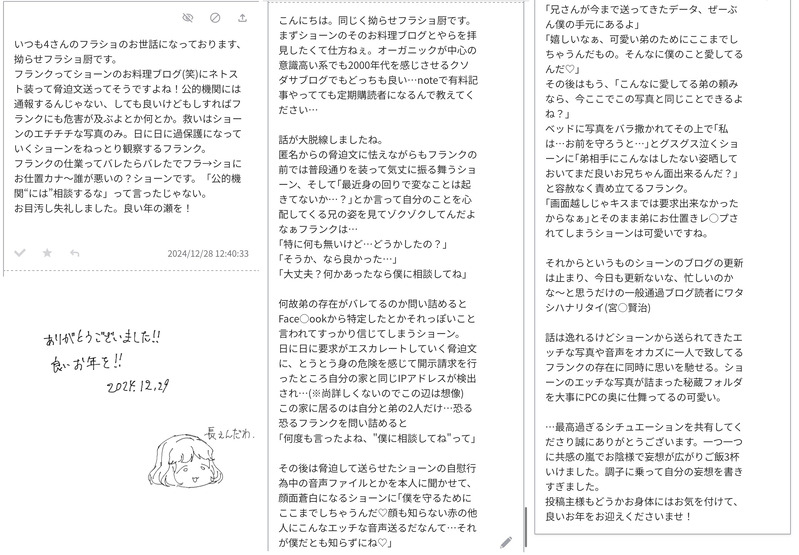 いつも4さんのフラショのお世話になっております、
拗らせフラショ厨です。
フランクってショーンのお料理ブログ(笑)にネトス
ト装って脅迫文送ってそうですよね！公的機関には
通報するんじゃない、しても良いけどもしすればフ
ランクにも危害が及ぶよとか何とか。救いはショー
ンのエチチチな写真のみ。日に日に過保護になって
いくショーンをねっとり観察するフランク。
フランクの仕業ってバレたらバレたでフラ→ショに
お仕置カナ〜誰が悪いの？ショーンです。「公的機
関“には”相談するな」って言ったじゃない。
お目汚し失礼しました。良い年の瀬を！
2024/12/28 12:40:33
ありがとうございました!!
良いお年を!!
2024.12.29
長えんだわ.
こんにちは。同じく拗らせフラショ厨です。
まずショーンのそのお料理ブログとやらを拝
見したくて仕方ねぇ。オーガニックが中心の
意識高い系でも2000年代を感じさせるクソ
ダサブログでもどっちも良い…noteで有料記
事やってても定期購読者になるんで教えてく
ださい…
話が大脱線しましたね。
匿名からの脅迫文に怯えながらもフランクの
前では普段通りを装って気丈に振る舞うショ
ーン、そして「最近身の回りで変なことは起
きてないか…？」とか言って自分のことを心
配してくる兄の姿を見てゾクゾクしてんだよ
なぁフランクは…
「特に何も無いけど…どうかしたの？」
「そうか、なら良かった…」
「大丈夫？何かあったなら僕に相談してね」
何故弟の存在がバレてるのか問い詰めると
Face◯ookから特定したとかそれっぽいこと
言われてすっかり信じてしまうショーン。
日に日に要求がエスカレートしていく脅迫文
に、とうとう身の危険を感じて開示請求を行
ったところ自分の家と同じIPアドレスが検出
され…(※尚詳しくないのでこの辺は想像)
この家に居るのは自分と弟の2人だけ…恐る
恐るフランクを問い詰めると
「何度も言ったよね、"僕に相談してね"って」
その後は脅迫して送らせたショーンの自慰行
為中の音声ファイルとかを本人に聞かせて、
顔面蒼白になるショーンに「僕を守るために
ここまでしちゃうんだ♡顔も知らない赤の他
人にこんなエッチな音声送るだなんて…それ
が僕だとも知らずにね♡」
「兄さんが今まで送ってきたデータ、ぜーぶ
ん僕の手元にあるよ」
「嬉しいなぁ、可愛い弟のためにここまでし
ちゃうんだもの。そんなに僕のこと愛してる
んだ♡」
その後はもう、「こんなに愛してる弟の頼み
なら、今ここでこの写真と同じことできるよ
ね？」
ベッドに写真をバラ撒かれてその上で「私
は…お前を守ろうと…」とグスグス泣くショ
ーンに「弟相手にこんなはしたない姿晒して
おいてまだ良いお兄ちゃん面出来るんだ？」
と容赦なく責め立てるフランク。
「画面越しじゃキスまでは要求出来なかった
からなぁ」とそのまま弟にお仕置きレ◯プさ
れてしまうショーンは可愛いですね。
それからというものショーンのブログの更新
は止まり、今日も更新ないな、忙しいのか
な〜と思うだけの一般通過ブログ読者にワタ
シハナリタイ(宮◯賢治)
話は逸れるけどショーンから送られてきたエ
ッチな写真や音声をオカズに一人で致してる
フランクの存在に同時に思いを馳せる。ショ
ーンのエッチな写真が詰まった秘蔵フォルダ
を大事にPCの奥に仕舞ってるの可愛い。
…最高過ぎるシチュエーションを共有してく
ださり誠にありがとうございます。一つ一つ
に共感の嵐でお陰様で妄想が広がりご飯3杯
いけました。調子に乗って自分の妄想を書き
すぎました。
投稿主様もどうかお身体にはお気を付けて、
良いお年をお迎えくださいませ！